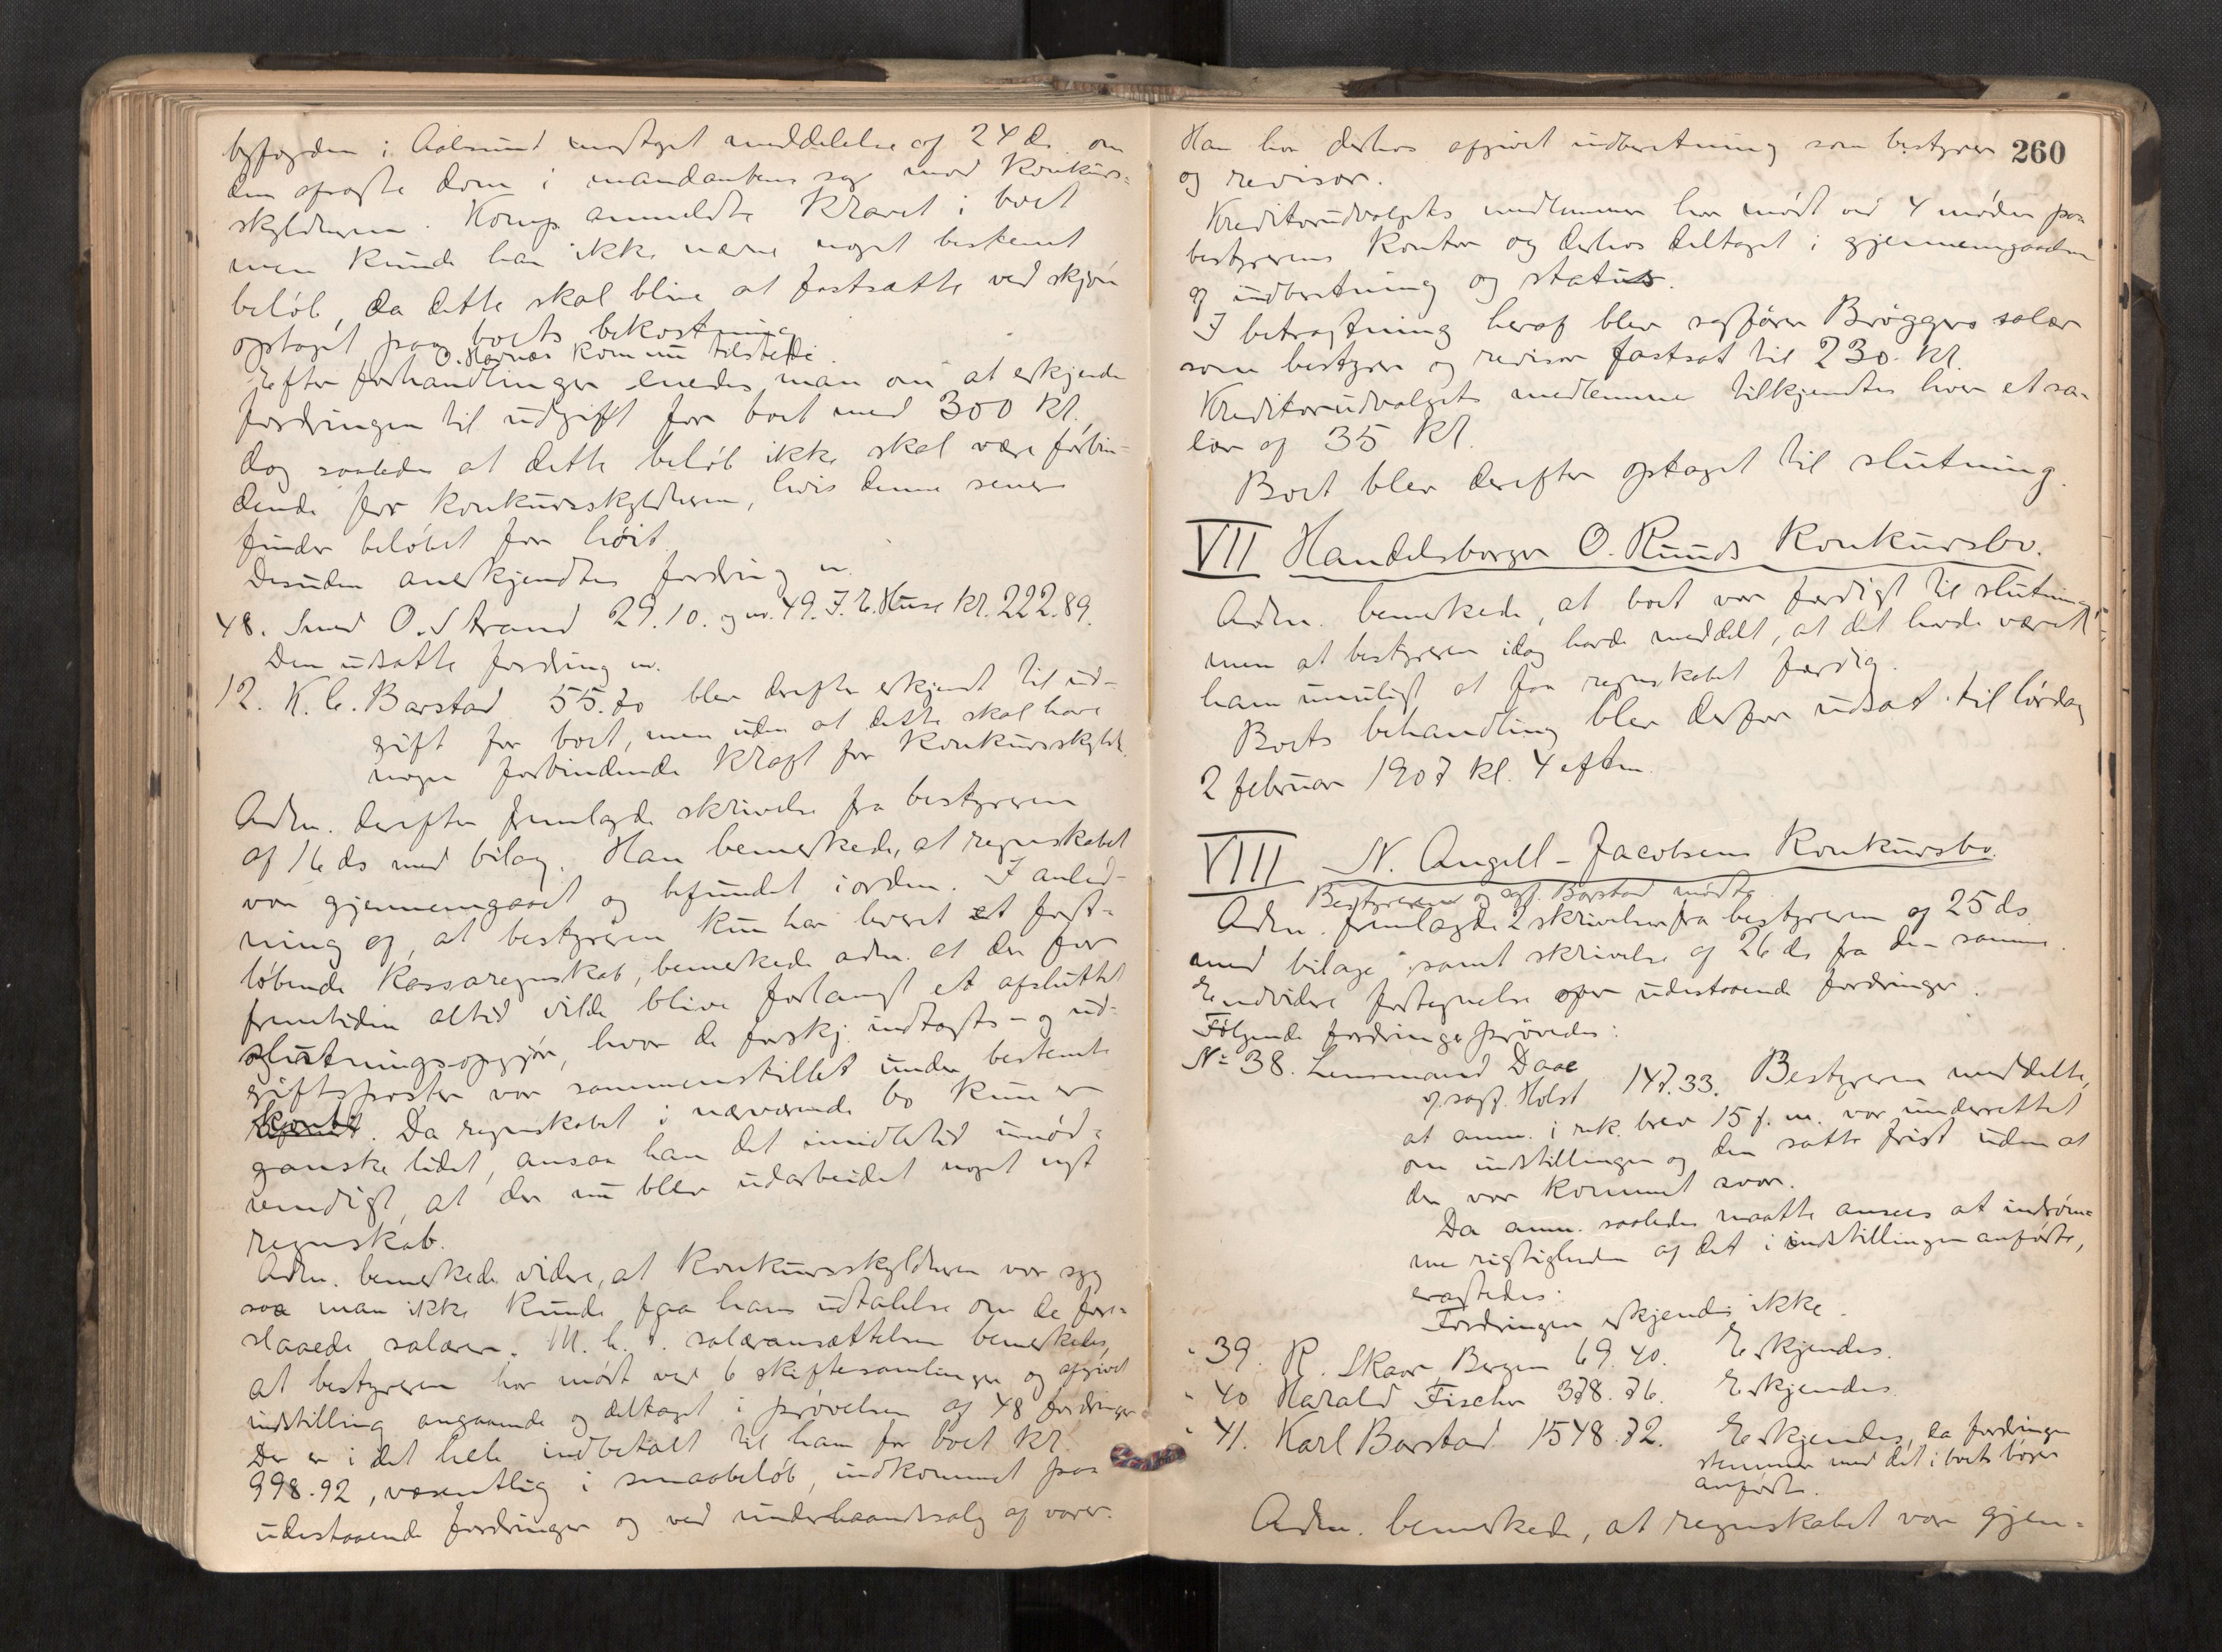 byfogden i Aalesund modtaget meddelelse af 24 ds. om
den afsagte dom i mandantens sag mod konkurs-
skyldneren. Korup anmeldte kravet i boet
men kunde han ikke nævne noget bestemt
beløb, da dette skal blive at fastsætte ved skjøn
optaget paa boets bekostning
O. Havnæs kom nu tilstede.
Efter forhandlinger enedes man om at erkjende
fordringen til udgift for boet med 300 kr.,
dog saaledes at dette beløb ikke skal være forbin-
dende for konkursskyldneren, hvis denne senere
finder beløbet for høit.
Desuden anerkjendtes fordring nr.
48. Smed O. Strand 29.10. og nr. 49. J. E. Huse kr. 222.89.
Den udsatte fordring nr.
12. K. C. Barstad 55.70 blev derefter erkjendt til ud-
gift for boet, men uden at dette skal have
nogen forbindende kraft for konkursskyldn.
Adm. derefter fremlagde skrivelse fra bestyreren
af 16 ds med bilag. Han bemerkede, at regnskabet
var gjennemgaaet og befundet i orden. I anled-
ning af, at bestyreren kun har leveret et fort-
løbende kassaregnskab, bemerkede adm. at der for
fremtiden altid vilde blive forlangt et afsluttet
slutningsopgjør, hvor de forskj. indtægts- og ud-
giftsposter var sammenstillet under bestemte
konti. Da regnskabet i nærværende bo kun er
ganske lidet, ansaa han det imidlertid unød-
vendigt, at der nu blev udarbeidet noget nyt
regnskab.
Adm. bemerkede videre, at konkursskyldneren var syg
saa man ikke kunde faa hans udtalelse om de fore-
slaaede salærer. M. h. t. salæransættelsen bemerkedes,
at bestyreren har mødt ved 6 skiftesamlinger og afgivet
indstilling angaaende og deltaget i prøvelsen af 48 fordringer
Der er i det hele indbetalt til ham for boet kr.
998.92, væsentlig i smaabeløb, indkommet paa
udestaaende fordringer og ved underhaandssalg af varer.
260
Han har derhos afgivet indberetning som bestyrer
og revisor.
Kreditorudvalgets medlemmer har mødt ved 4 møder paa
bestyrerens kontor og derhos deltaget i gjennemgaaelsen
af indberetning og status.
I betragtning heraf blev sagfører Brøggers salær
som bestyrer og revisor fastsat til 230 kr.
Kreditorudvalgets medlemmer tilkjendtes hver et sa-
lær af 35 kr.
Boet blev derefter optaget til slutning.
VII Handelsborger O. Ruuds Konkursbo.
Adm. bemerkede, at boet var færdigt til slutning,
men at bestyreren idag havde meddelt, at det havde været
ham umuligt at faa regnskabet færdig.
Boets behandling blev derfor udsat til lørdag
2 februar 1907 kl. 4 eftm.
VIII N. Angell-Jacobsens Konkursbo.
Bestyreren og sagf. Barstad mødte
Adm. fremlagde 2 skrivelser fra bestyreren af 25 ds
med bilage samt skrivelse af 26 ds fra den samme.
Endvidere fortegnelse over udestaaende fordringer.
Følgende fordringer prøvedes:
No 38. Lensmand Daae
v. sagf. Holst 147.33. Bestyreren meddelte,
at anm. i rek. brev 15 f. m. var underrettet
om indstillingen og den satte frist uden at
der var kommet svar.
Da anm. saaledes maatte ansees at indrøm-
me rigtigheden af det i indstillingen anførte,
eragtedes:
Fordringen erkjendes ikke.
" 39. R. Skaar, Bergen 69.40. Erkjendes.
" 40 Harald Fischer 378.76. Erkjendes.
" 41. Karl Barstad 1548.72. Erkjendes, da fordringen
stemmer med det i boets bøger
anførte.
Adm. bemerkede, at regnskabet var gjen-